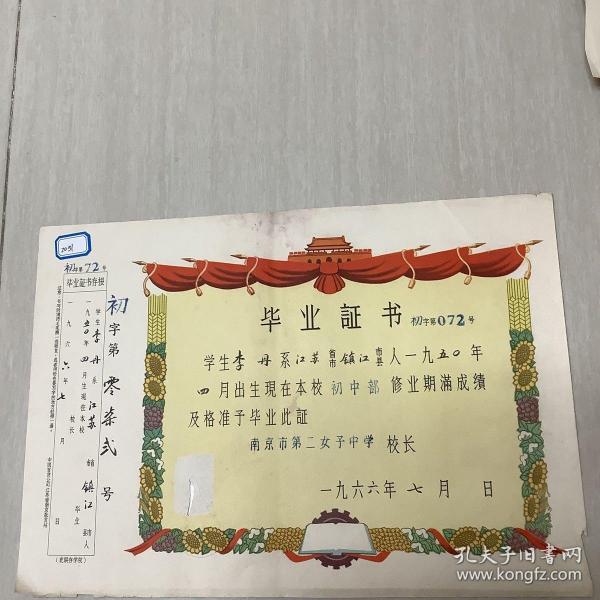 2051
初字第72号
毕业証书存根
学生李丹系江苏省市镇江市县人
一九五〇年四月生現在本校
毕业
校长
一九六六年七月 日
(史联存学校)
初字第零柒弐号
毕业証书
初字第072号
学生李丹系江苏省市镇江市县人一九五〇年
四月出生現在本校初中部修业期滿成績
及格准予毕业此証
南京市第二女子中学 校长
一九六六年七月 日
孔夫子旧书网
www.kongfz.com